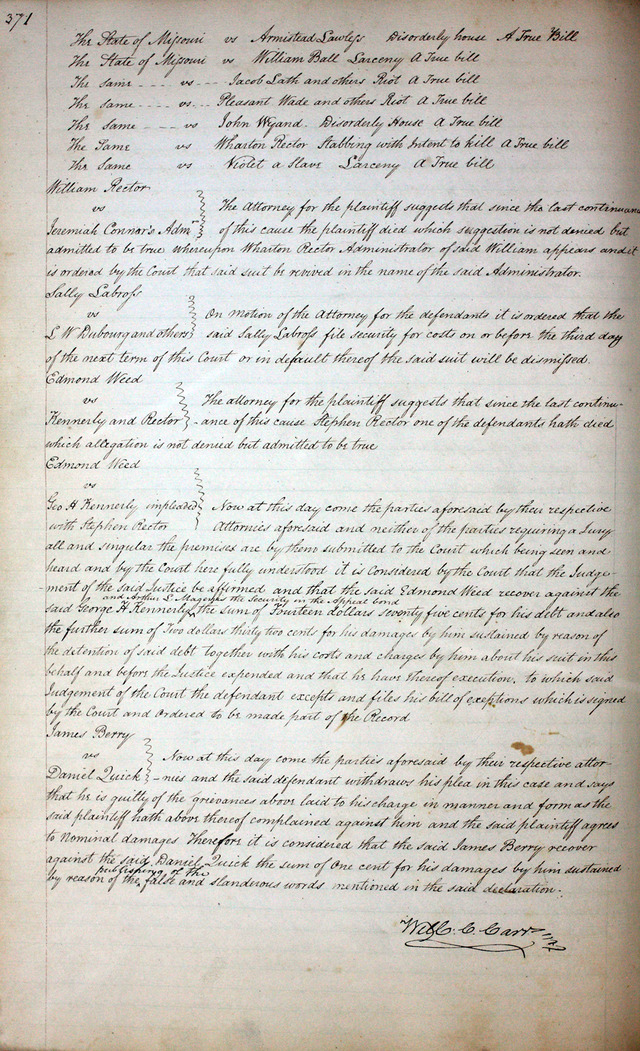 371
The State of Missouri vs Armistead Lawless Disorderly house A True Bill
The State of Missouri vs William Ball Larceny A True bill
The same vs Jacob Lath and others Riot A True bill
The same vs Pleasant Wade and others Riot A True bill
The same vs John Wyand. Disorderly House A True bill
The Same vs Wharton Rector Stabbing with Intent to kill A True bill
The Same vs Violet a Slave Larceny A True bill
William Rector
vs
The Attorney for the plaintiff suggests that since the last continuance
Jeremiah Connor's Admr
of this cause the plaintiff died which suggestion is not denied but
admitted to be true whereupon Wharton Rector Administrator of said William appears and it
is ordered by the Court that said suit be revived in the name of the said Administrator.
Sally Labross
vs
On motion of the Attorney for the defendants it is ordered that the
L W Dubourg and others
said Sally Labross file security for costs on or before the third day
of the next term of this Court or in default thereof the said suit will be dismissed.
Edmond Weed
vs
The attorney for the plaintiff suggests that since the last continu-
Kennerly and Rector
-ance of this cause Stephen Rector one of the defendants hath died
which allegation is not denied but admitted to be true
Edmond Weed
vs
Geo H Kennerly impleaded
Now at this day come the parties aforesaid by their respective
with Stephen Rector
Attornies aforesaid and neither of the parties requiring a Jury
all and singular the premises are by them submitted to the Court which being seen and
heard and by the Court here fully understood it is Considered by the Court that the Judge-
ment of the said Justice be affirmed and that the said Edmond Weed recover against the
and Arthur L Magenis the Security in the Appeal bond
said George H Kennerly the sum of Fourteen dollars seventy five cents for his debt and also
the further sum of Two dollars thirty two cents for his damages by him sustained by reason of
the detention of said debt together with his costs and charges by him about his suit in this
behalf and before the Justice expended and that he have thereof execution, to which said
Judgement of the Court the defendant excepts and files his bill of exeptions which is signed
by the Court and ordered to be made part of the Record
James Berry
vs
Now at this day come the parties aforesaid by their respective attor-
Daniel Quick
-nies and the said defendant withdraws his plea in this case and says
that he is guilty of the grievances above laid to his charge in manner and form as the
said plaintiff hath above thereof complained against him and the said plaintiff agrees
to Nominal damages Therefore it is considered that the said James Berry recover
against the said Daniel Quick the sum of One cent for his damages by him sustained
publishing of the
by reason of the false and slanderous words mentioned in the said declaration.
Will. C. Carr